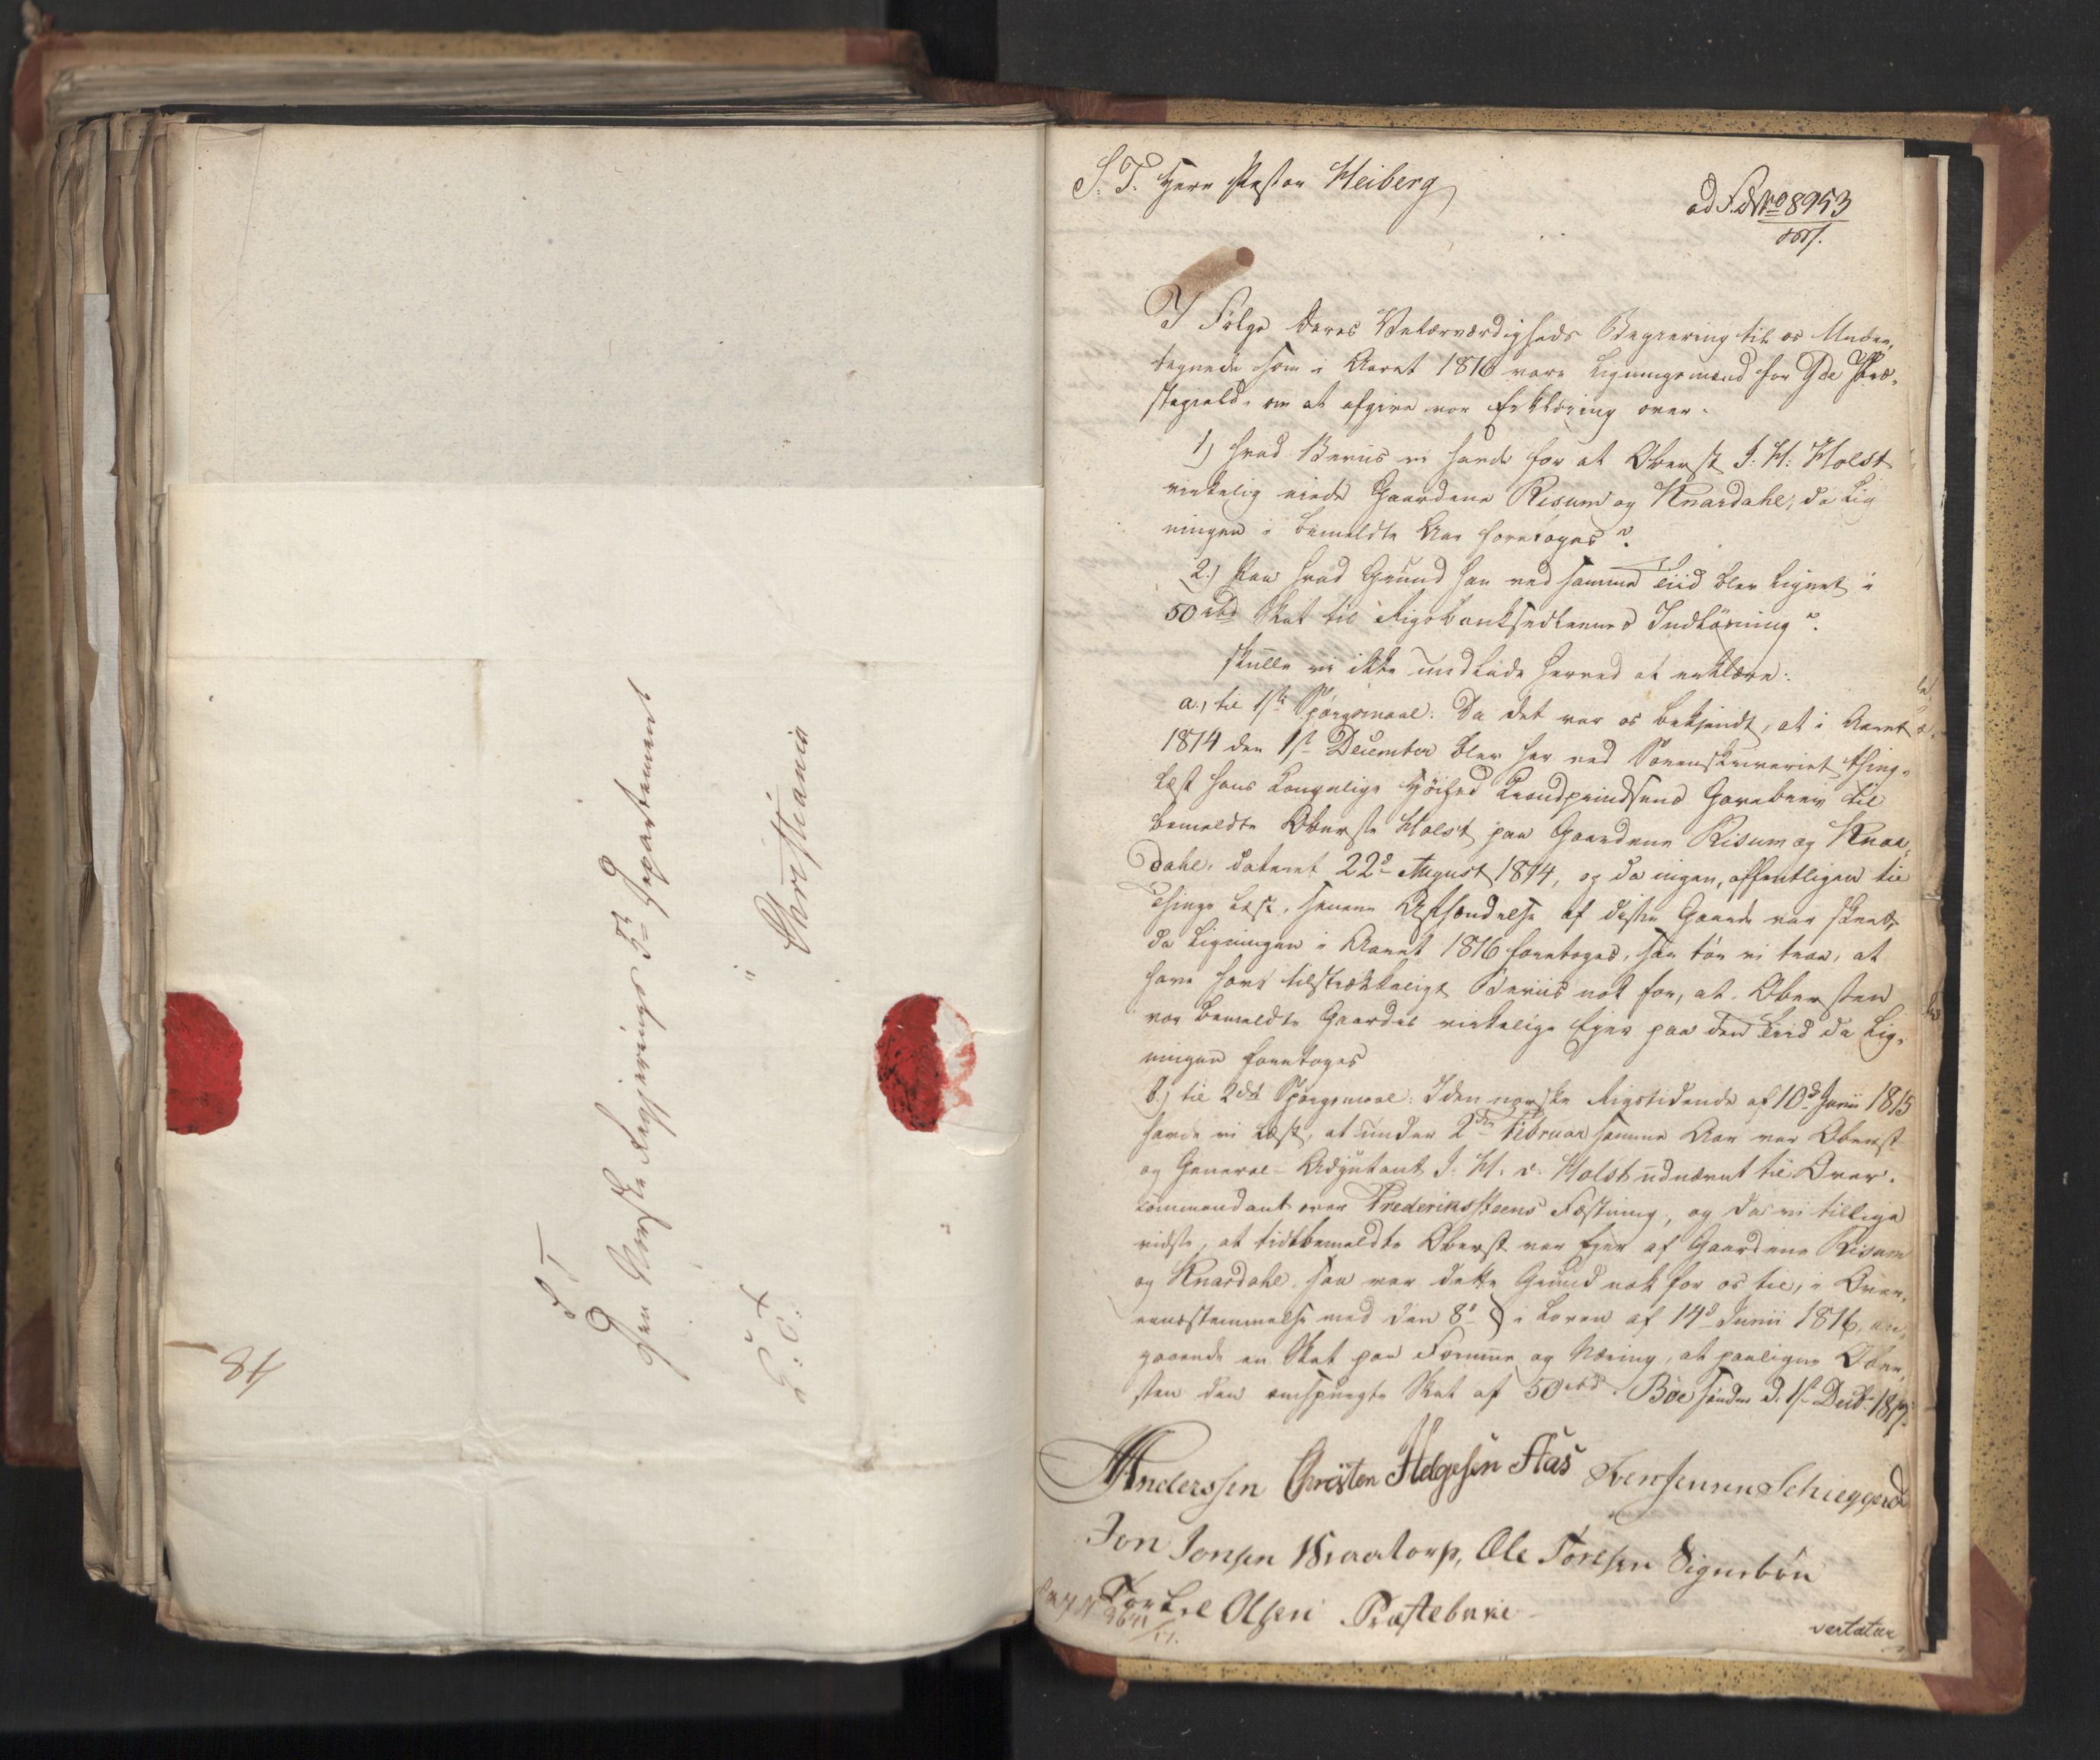 S. T.
Den Norske Regjerings 5te Departement
i
Christiania
84
S. T. Herr Pastor Heiberg
ad No 8953
I Følge Deres Velærværdigheds Begjering til os Under-
tegnede som i Aaret 1816 vare Ligningsmænd for Præ-
stegield, om at afgive vor Erklæring over.
1) hvad Beviis vi havde for at Oberst J: H: Holst
virkelig eiede Gaardene Risum og Knardahl, da Lig
ningen i bemeldte Aar foretoges?
2.) Paa hvad Grund han ved samme Tiid blev lignet i
50 rbd Skat til Rigsbanksedlernes Indløsning?
skulle vi ikke undlade herved at erklære:
a., til 1ste Spørgsmaal: Da det var os bekjendt, at i Aaret
1814 den 1ste December blev her ved Sorenskriveriet thing-
læst hans Kongelige Høihed Kronprindsens Gavebrev til
bemeldte Oberste Holst paa Gaardene Risum og Knar-
dahl, dateret 22d August 1814, og da ingen, offentligen til
Thinge læst, senere Afhændelse af disse Gaarde var skeet,
da Ligningen i Aaret 1816 foretoges, saa tør vi troe, at
have havt tilstrækkeligt Beviis nok for, at Obersten
var bemeldte Gaardes virkelige Ejer paa den Tiid da Lig-
ningen foretoges
b.) til 2det Spørgsmaal: I den norske Rigstidende af 10d Junii 1815
havde vi læst, at under 2den Februar samme Aar var Oberst
og General-Adjutant J. H. v. Holst udnævnt til Over-
commendant over Frederiksteens Fæstning, og da vi tillige
vidste, at tidtbemeldte Oberst var Ejer af Gaardene Risum
og Knardahl, saa var dette Grund nok for os til, i Over-
eensstemmelse med den 8d § i Loven af 14d Junii 1816, an-
gaaende en Skat paa Formue og Næring, at paaligne Ober-
sten den omspurgte Skat af 50 rbd. Bøe Sønder d: 1ste Decbr 1817.
Anderssen Christen Helgesen Aas Iver Jensen
Jon Jonsen Braatorp, Ole Toresen Signebøn
Olsen Præstebake
vertatur